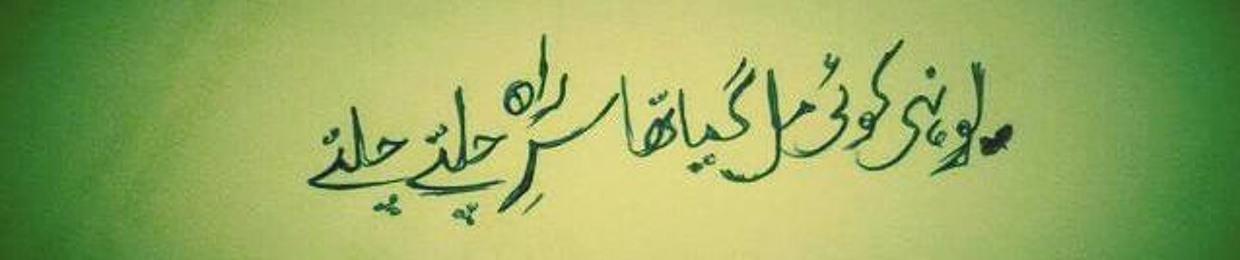 یونہی کوئی مل گیا تھا سرِ راہ چلتے چلتے